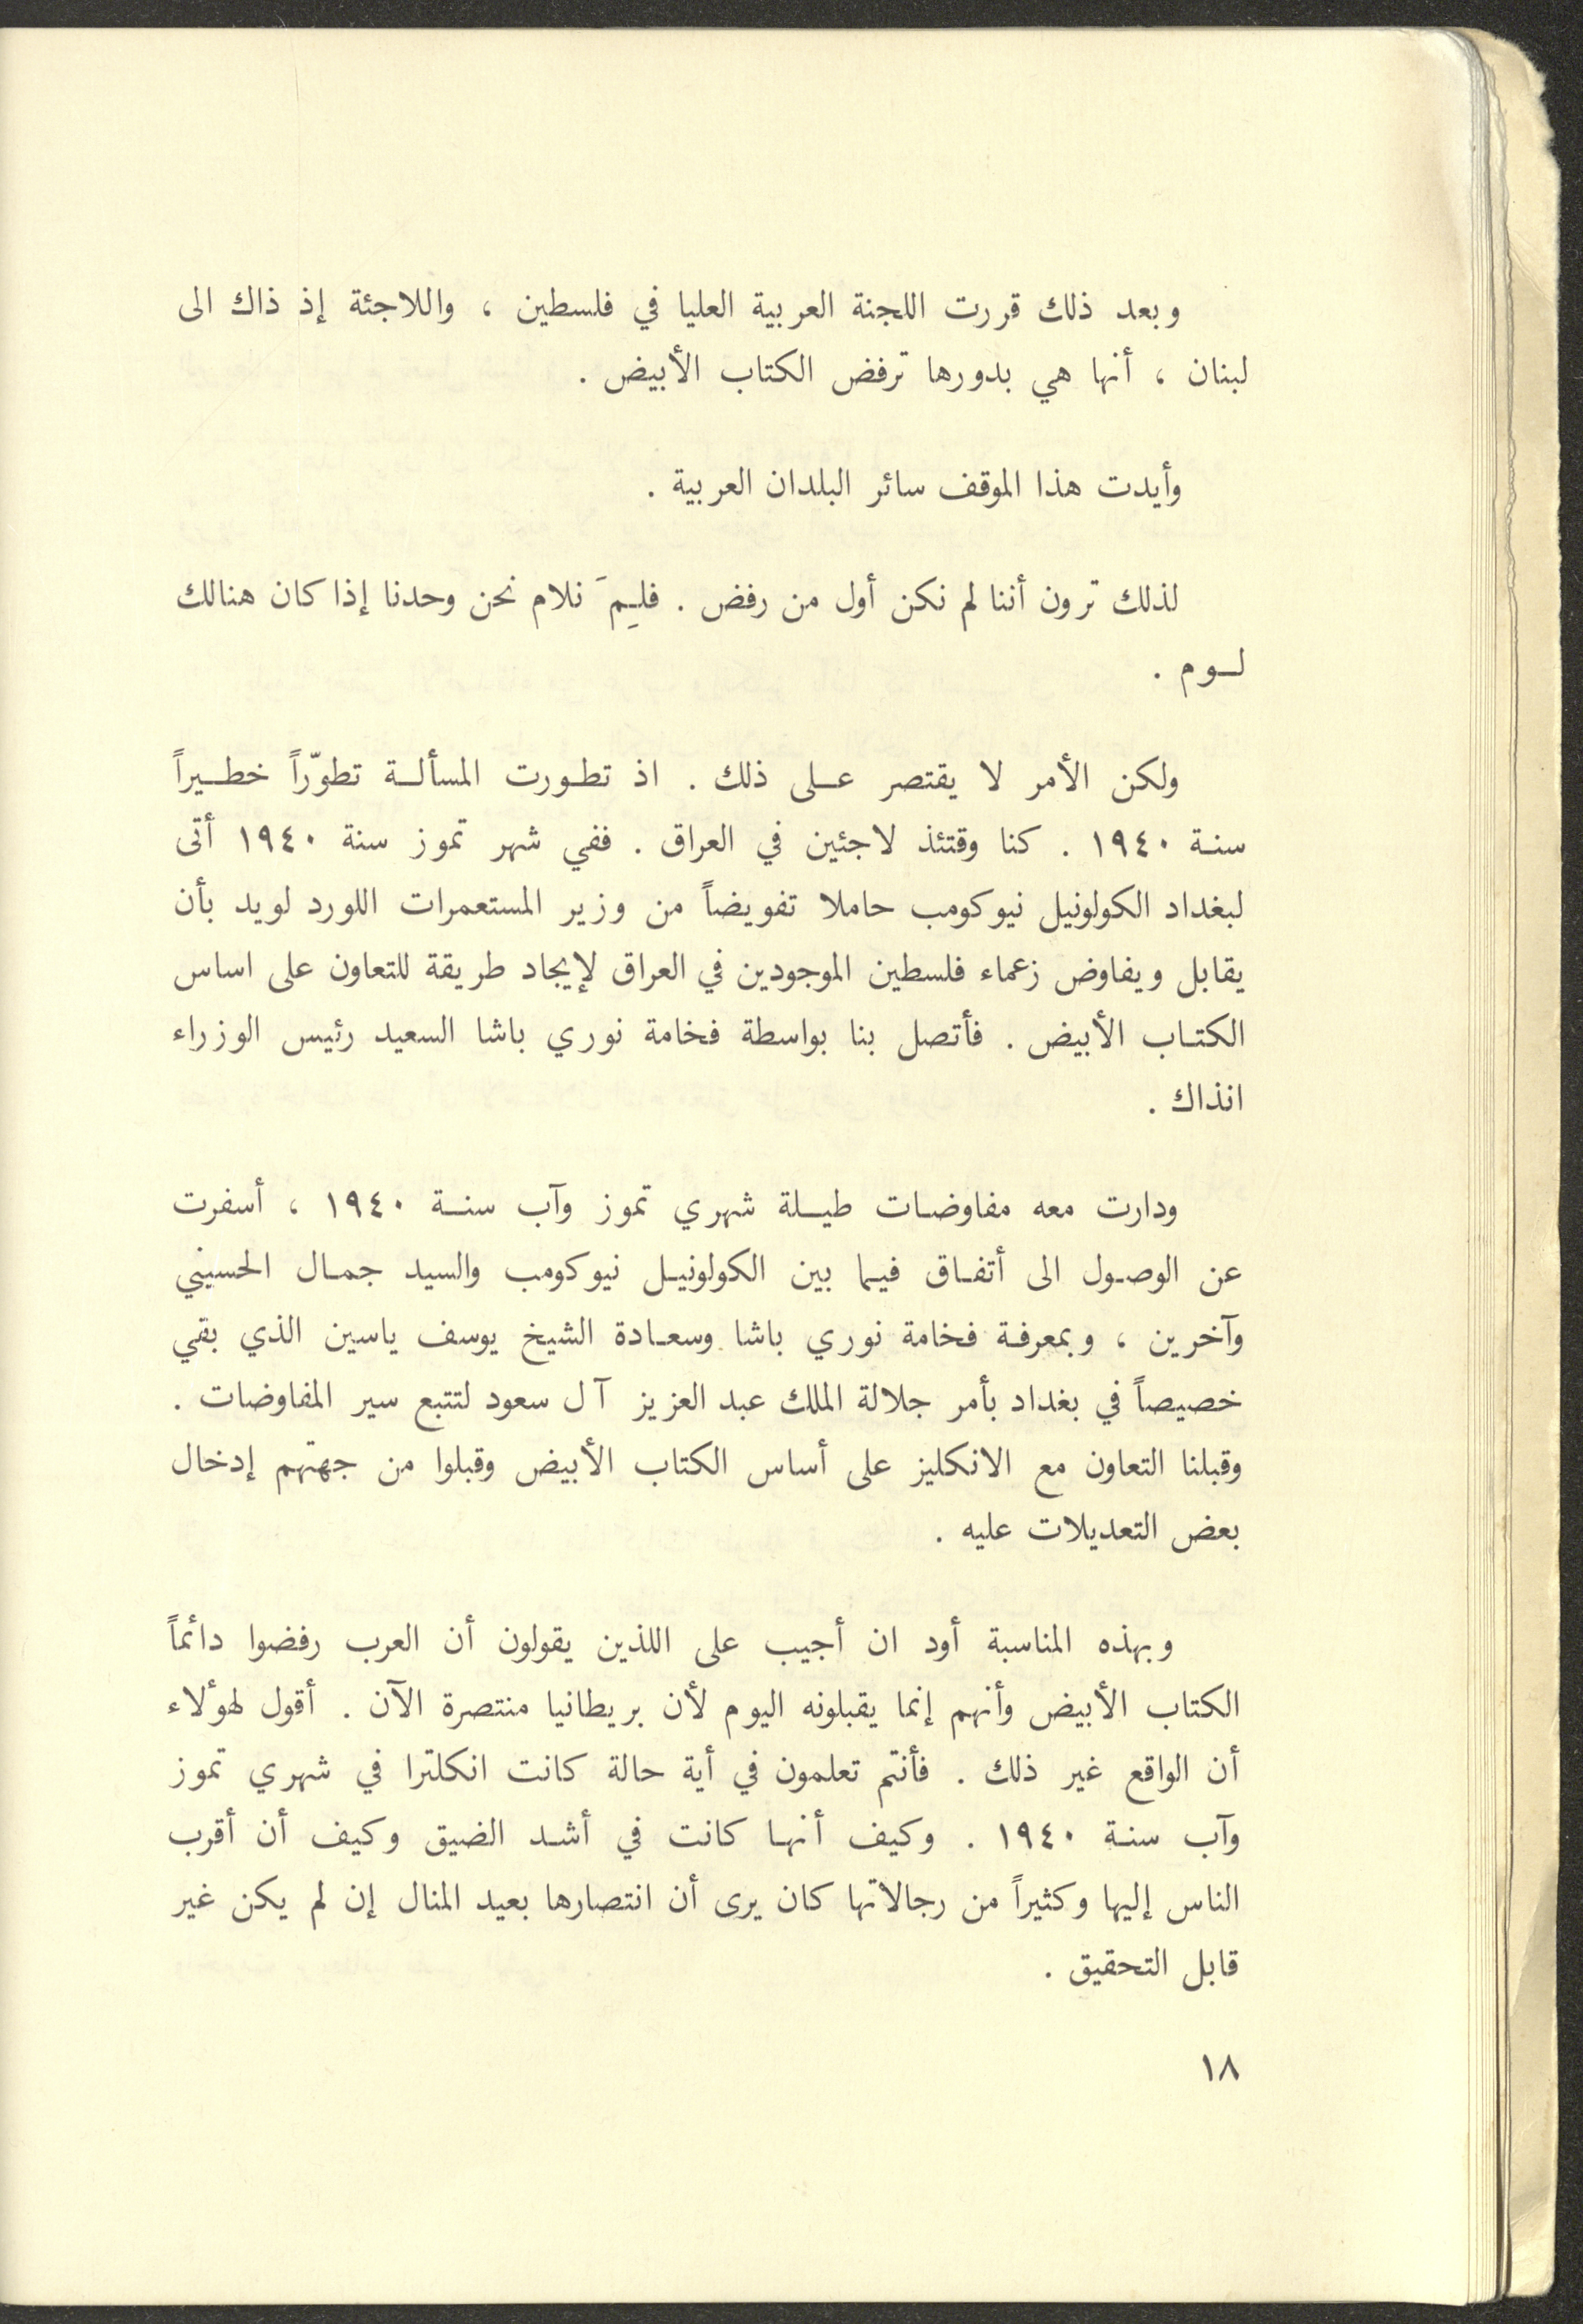 وبعد ذلك قررت اللجنة العربية العليا في فلسطين ، واللاجئة إذ ذاك الى
لبنان ، أنها هي بدورها ترفض الكتاب الأبيض .
وأيدت هذا الموقف سائر البلدان العربية .
لذلك ترون أننا لم نكن أول من رفض . فلِمَ نلام نحن وحدنا إذا كان هنالك
لوم .
ولكن الأمر لا يقتصر على ذلك . اذ تطورت المسألة تطوّراً خطيراً
سنة ١٩٤٠ . كنا وقتئذ لاجئين في العراق . ففي شهر تموز سنة ١٩٤٠ أتى
لبغداد الكولونيل نيوكومب حاملا تفويضاً من وزير المستعمرات اللورد لويد بأن
يقابل ويفاوض زعماء فلسطين الموجودين في العراق لإيجاد طريقة للتعاون على اساس
الكتاب الأبيض . فأتصل بنا بواسطة فخامة نوري باشا السعيد رئيس الوزراء
انذاك .
ودارت معه مفاوضات طيلة شهري تموز وآب سنة ١٩٤٠ ، أسفرت
عن الوصول الى أتفاق فيما بين الكولونيل نيوكومب والسيد جمال الحسيني
وآخرين ، وبمعرفة فخامة نوري باشا وسعادة الشيخ يوسف ياسين الذي بقي
خصيصاً في بغداد بأمر جلالة الملك عبد العزيز آل سعود لتتبع سير المفاوضات .
وقبلنا التعاون مع الانكليز على أساس الكتاب الأبيض وقبلوا من جهتهم إدخال
بعض التعديلات عليه .
وبهذه المناسبة أود ان أجيب على اللذين يقولون أن العرب رفضوا دائماً
الكتاب الأبيض وأنهم إنما يقبلونه اليوم لأن بريطانيا منتصرة الآن . أقول لهؤلاء
أن الواقع غير ذلك . فأنتم تعلمون في أية حالة كانت انكلترا في شهري تموز
وآب سنة ١٩٤٠ . وكيف أنها كانت في أشد الضيق وكيف أن أقرب
الناس إليها وكثيراً من رجالاتها كان يرى أن انتصارها بعيد المنال إن لم يكن غير
قابل التحقيق .
١٨